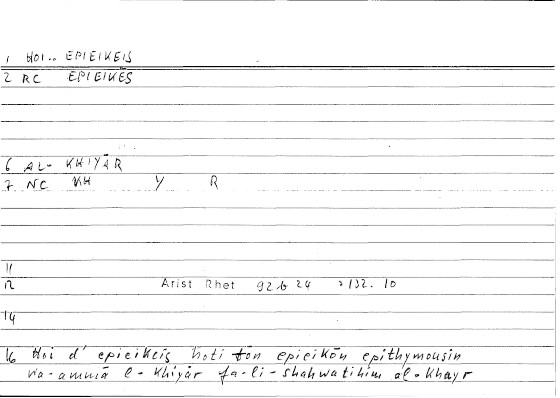 1 HOI.. EPIEIKEIS
2 RC EPIEIKES
6 AL- KHIYĀR
7 NC KH Y R
11
12 Arist Rhet 92b24 =132.10
14
16 Hoi d' epieikeis hoti tōn epieikōn epithymousin
wa-ammā l-khiyār fa-li-shahwatihim al-khayr